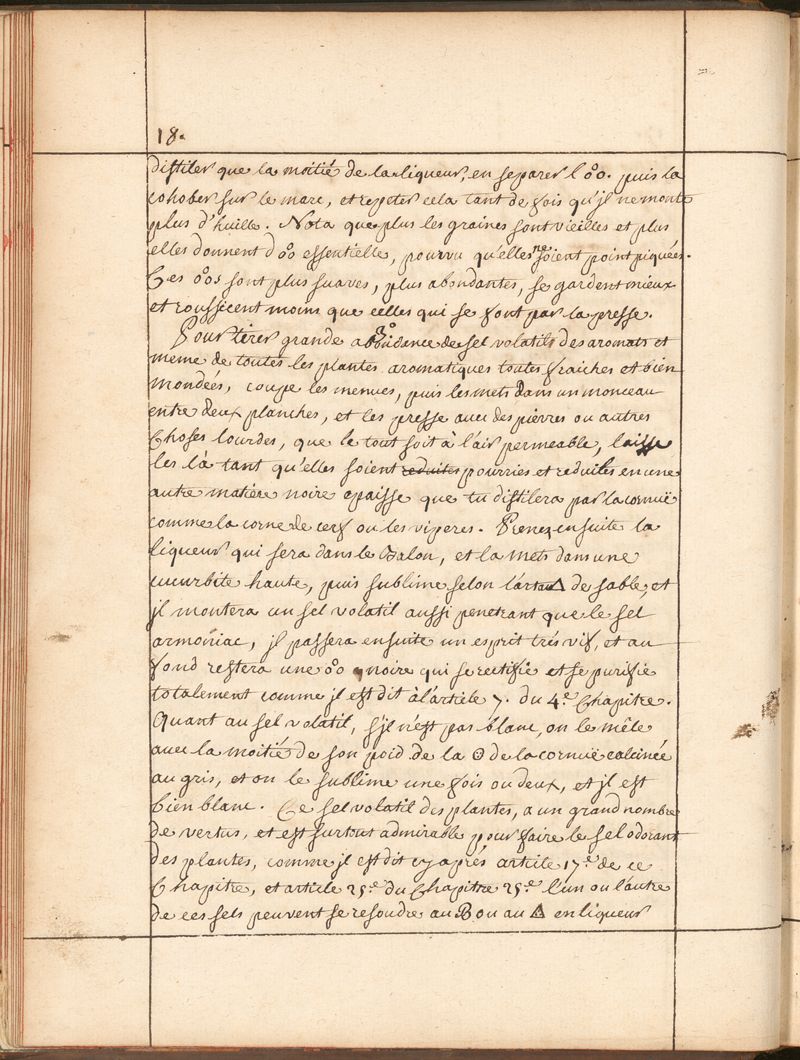 18.
distiler que la moitié de la liqueur, en separer l'°o°. puis la
cohober sur le marc, et repeter cela tant de fois qu'jl ne monte
plus d'huille. Nota que plus les graines sont vieilles et plus
elles donnent d'°o° essentielle, pourvu qu'elles ne soient point piquées.
Ces °o°s sont plus suaves, plus abondantes, se gardent mieux
et roussicent moins que celles qui se font par la presse.
Pour tirer grande abondance de sel volatils des aromats et
meme de toutes les plantes aromatiques toutes fraiches et bien
mondées, coupe les menues, puis les mets dans un monceau
entre deux planches, et les presse avec des pierres ou autres
Choses lourdes, que le tout soit à l'air permeable, laisse
les là tant qu'elles soient reduites pourries et reduites en une
autre matiere noire epaisse que tu distilera par la cornuë
comme la corne de cerf ou les viperes. Prenez ensuite la
liqueur qui sera dans le Balon, et la mets dans une
cucurbite haute, puis sublime selon l'art au △ de sable, et
jl montera un sel volatil aussi penetrant que le sel
armoniac, jl passera ensuite un esprit trés vif, et au
fond restera une °o° noire qui se rectifie et se purifie
totalement comme jl est dit à l'article 7. du 4.e Chapitre.
Quant au sel volatil, s'jl n'est pas blanc, on le mêle
avec la moitié de son poid de la ʘ de la cornuë calcinée
au gris, et on le sublime une fois ou deux, et jl est
bien blanc. Ce sel volatil des plantes, a un grand nombre
de vertus, et est surtout admirable pour faire le sel odorant
des plantes, comme jl est dit cy aprés article 17.e de ce
Chapitre, et article 25.e du Chapitre 25.e l'un ou l'autre
de ces sels peuvent se resoudre au B ou au 🜁 en liqueur